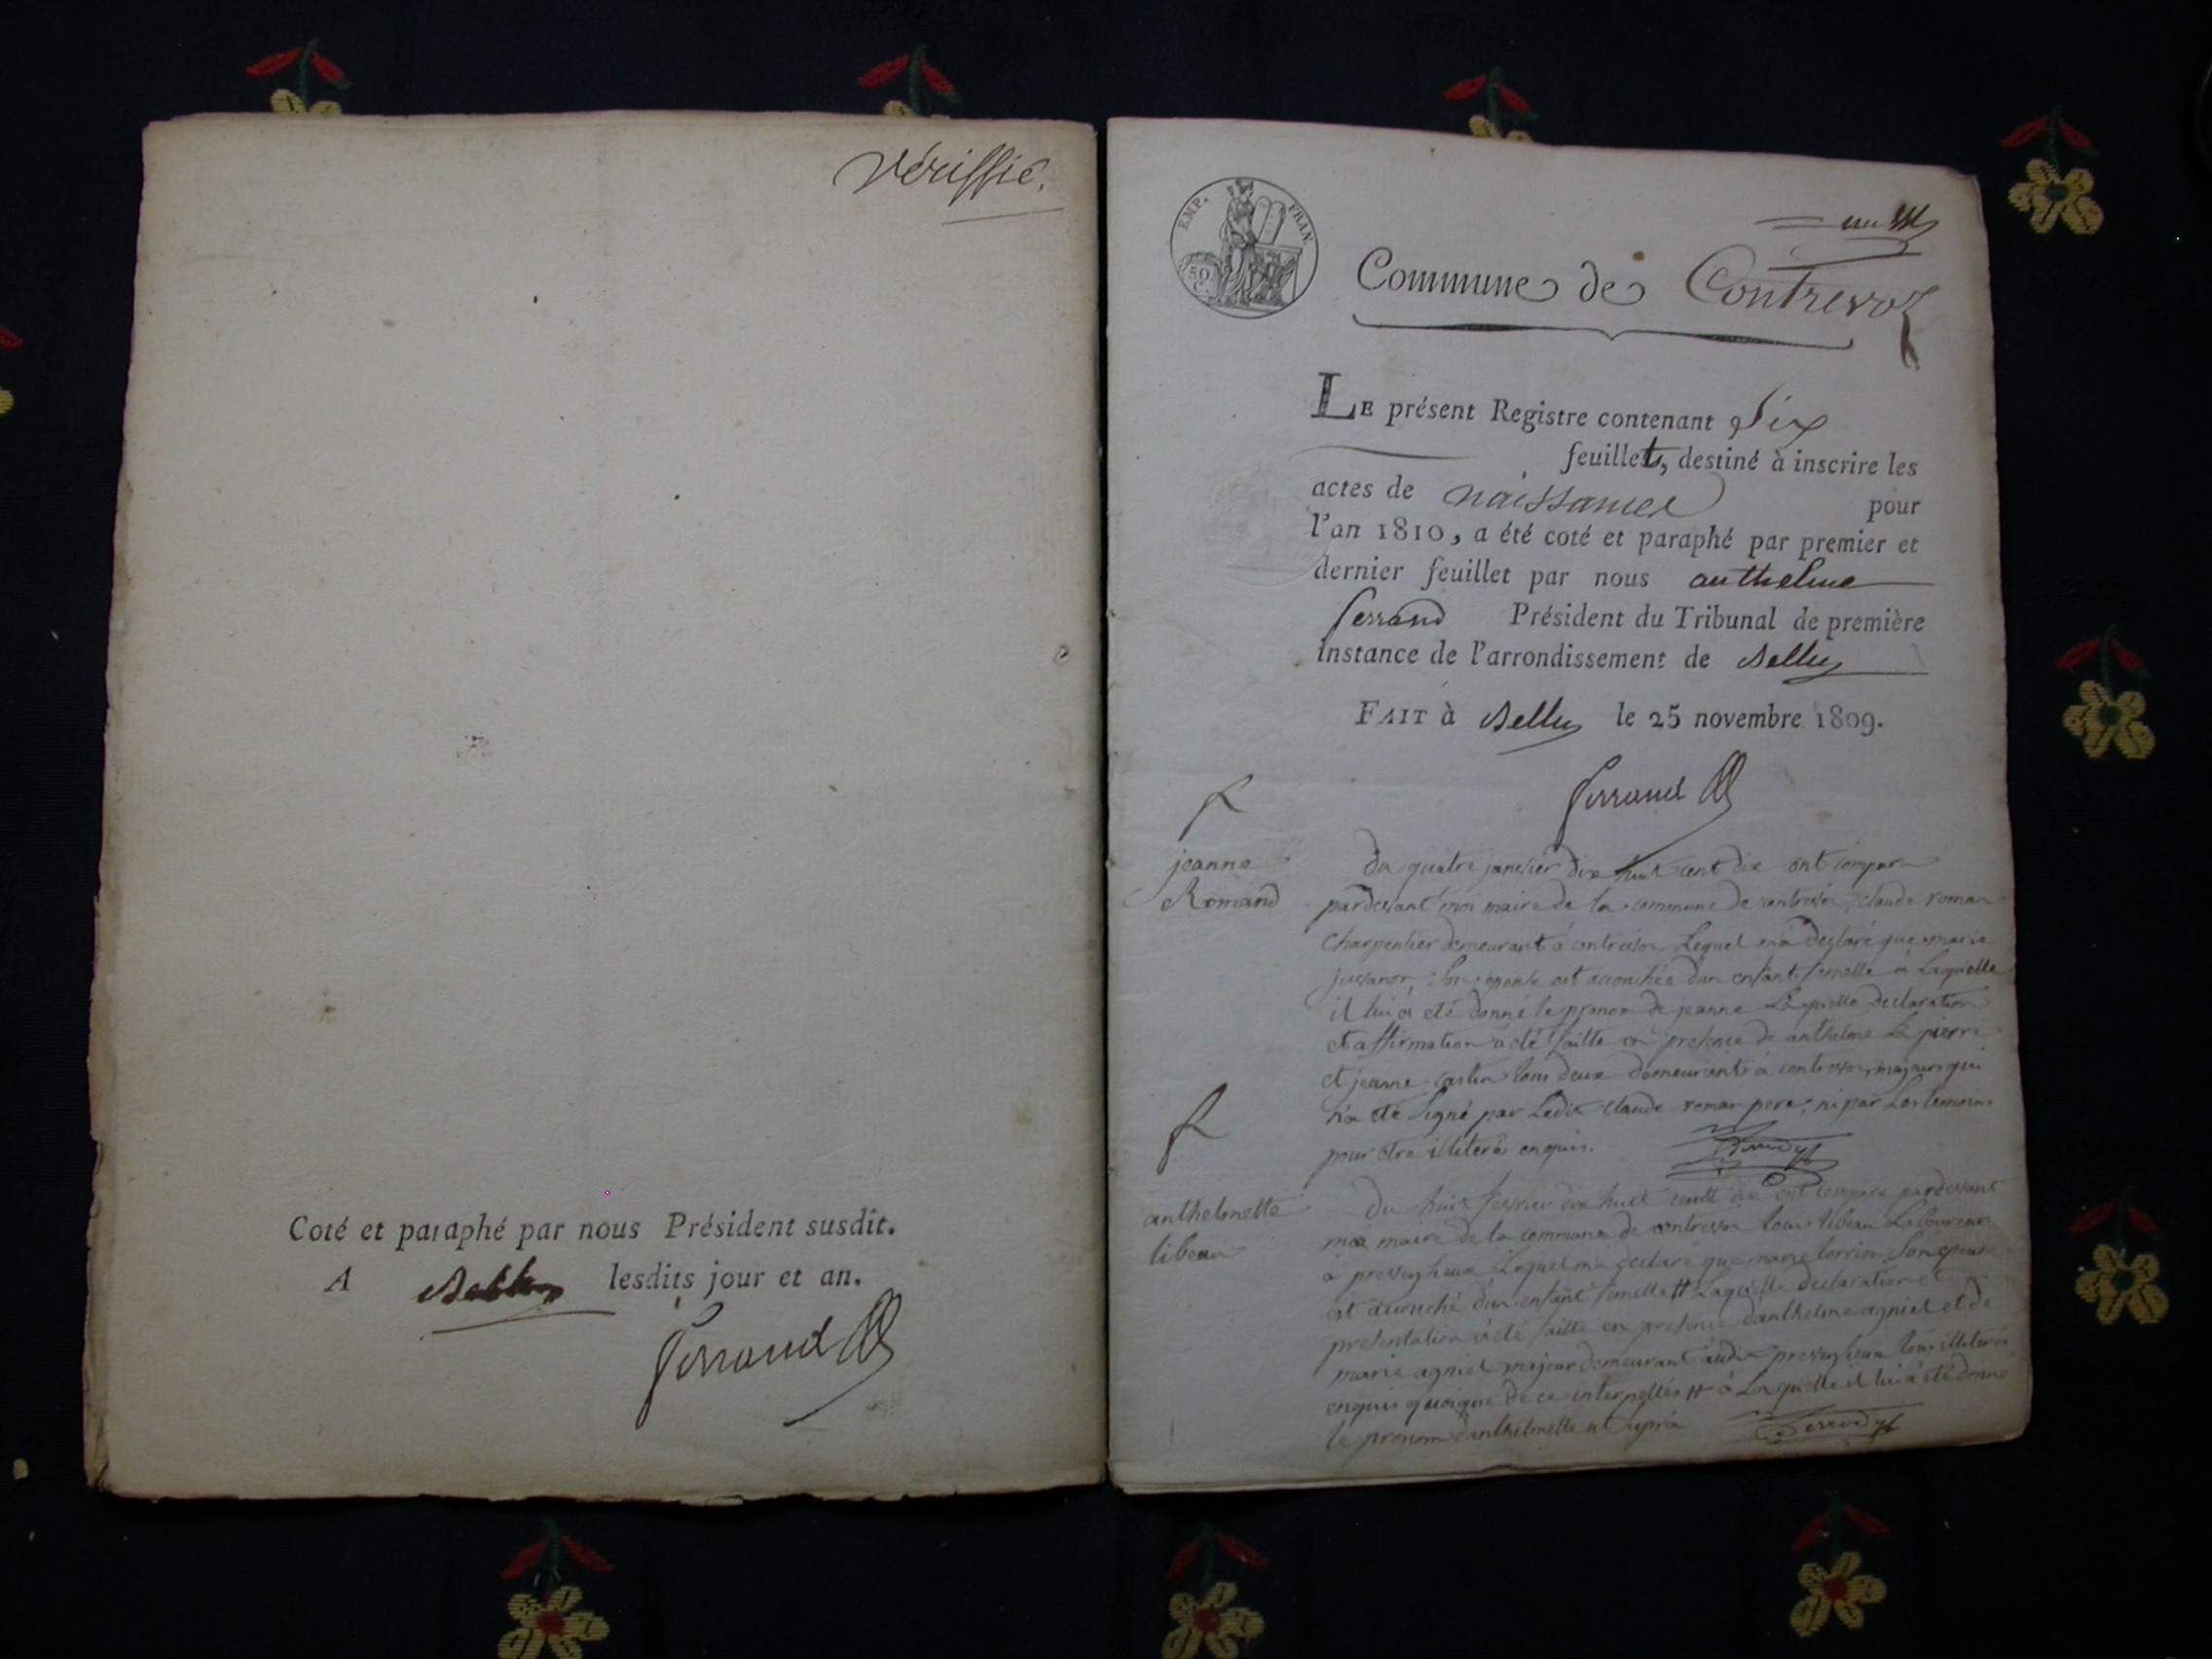 Vériffié.
Coté et paraphé par nous Président susdit.
A Belley lesdits jour et an.
Ferrand
EMP. FRAN.
50 C.
un
Commune de Contrevoz
LE présent Registre contenant Six
feuillets, destiné à inscrire les
actes de naissances pour
l'an 1810, a été coté et paraphé par premier et
dernier feuillet par nous anthelme
ferrand Président du Tribunal de première
instance de l'arrondissement de Belley
FAIT à Belley le 25 novembre 1809.
Ferrand
jeanne
Romand
du quatre janvier dix huit cent dix ont comparu
pardevant moi maire de la commune de contrevoz claude roman
charpentier demeurant à contrevoz Lequel m'a declaré que marie
son epouse est accouchée d'un enfant femelle à Laquelle
il lui a été donné le prenom de jeanne Laquelle declaration
et affirmation a été faitte en presence de anthelme La pierre
et jeanne tous deux demeurant à contrevoz majeurs qui
n'a été signé par Ledit claude roman pere, ni par Les temoins
pour etre illiteré enquis.
anthelmette
tibeau
Du huit fevrier dix huit cent dix est comparu pardevant
moi maire de la commune de contrevoz Louis tibeau Laboureur
à presseyheux Lequel m'a declaré que marie son epouse
est accouché d'un enfant femelle # Laquelle declaration et
presentation a été faitte en presence d'anthelme agniel et de
marie agniel majeur demeurant audit presseyheux tous illiteres
enquis quoique de ce interpellés # à Laquelle il lui a été donné
le prenom d'anthelmette ut supra